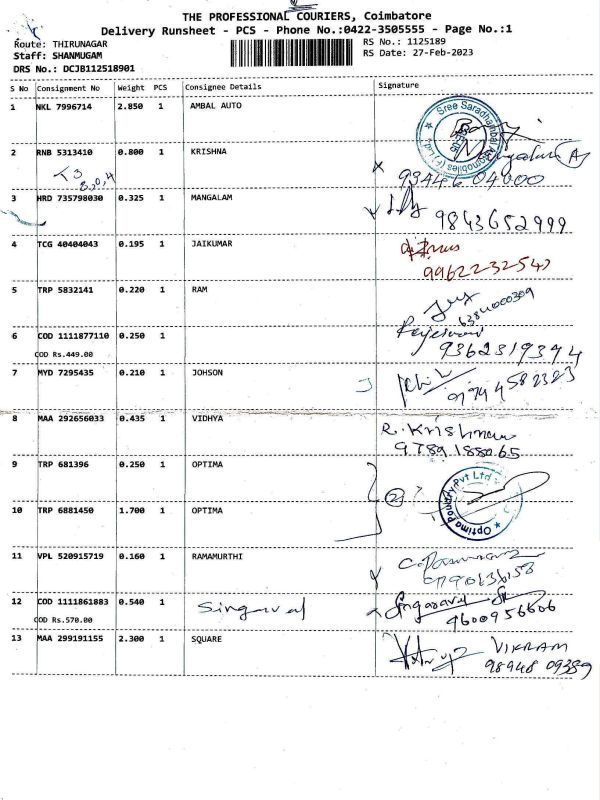 THE PROFESSIONAL COURIERS, Coimbatore
Delivery Runsheet - PCS - Phone No.:0422-3505555 - Page No.:1
Route: THIRUNAGAR
Staff: SHANMUGAM
DRS No.: DCJB112518901
RS No.: 1125189
RS Date: 27-Feb-2023
S No Consignment No Weight PCS Consignee Details Signature
1 NKL 7996714 2.850 1 AMBAL AUTO
Sree Saradhambal Automobiles (P) Ltd
2 RNB 5313410 0.800 1 KRISHNA
93446 04000
3 HRD 735798030 0.325 1 MANGALAM
9843652999
4 TCG 40404043 0.195 1 JAIKUMAR
5 TRP 5832141 0.220 1 RAM
6384000309
6 COD 1111877110 0.250 1
COD Rs.449.00
Rajeswari
9362319394
7 MYD 7295435 0.210 1 JOHSON
8 MAA 292656033 0.435 1 VIDHYA
R. Krishnan
9789188065
9 TRP 681396 0.250 1 OPTIMA
2
Optima Poultry Pvt Ltd
10 TRP 6881450 1.700 1 OPTIMA
11 VPL 520915719 0.160 1 RAMAMURTHI
9790636158
12 COD 1111861883 0.540 1 Singaravel
COD Rs.570.00
Singaravel
9600956606
13 MAA 299191155 2.300 1 SQUARE
VIKRAM
98948 09389